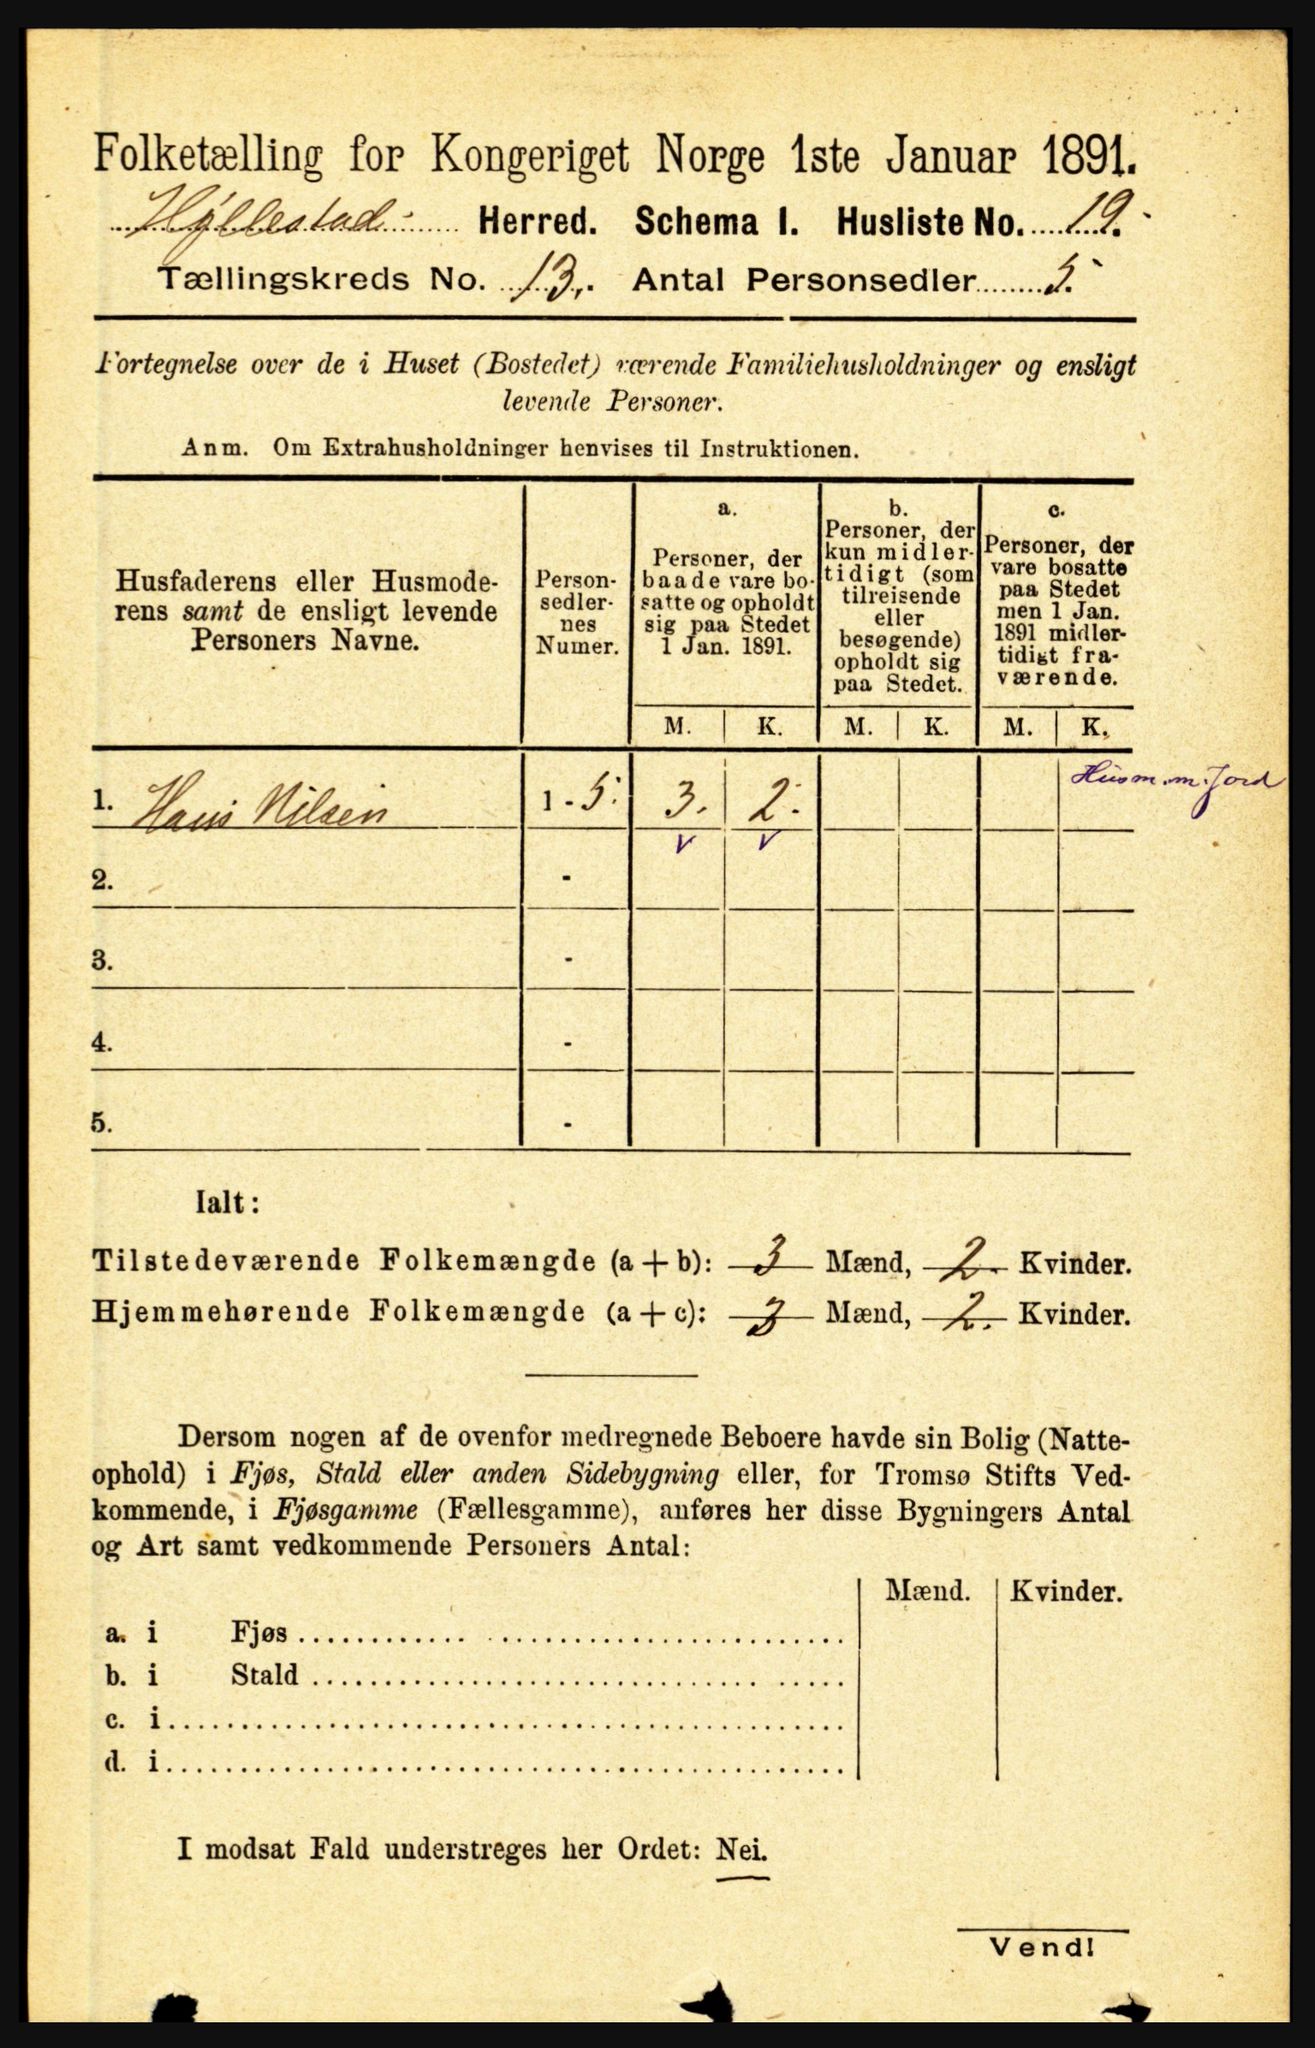 Folketælling for Kongeriget Norge 1ste Januar 1891.
Hyllestad Herred. Schema I. Husliste No. 19.
Tællingskreds No. 13. Antal Personsedler 5.
Fortegnelse over de i Huset (Bostedet) værende Familiehusholdninger og ensligt
levende Personer.
Anm. Om Extrahusholdninger henvises til Instruktionen.
Husfaderens eller Husmode-
rens samt de ensligt levende
Personers Navne.
Person-
sedler-
nes
Numer.
a.
Personer, der
baade vare bo-
satte og opholdt
sig paa Stedet
1 Jan. 1891.
b.
Personer, der
kun midler-
tidigt (som
tilreisende
eller
besøgende)
opholdt sig
paa Stedet.
c.
Personer, der
vare bosatte
paa Stedet
men 1 Jan.
1891 midler-
tidigt fra-
værende.
M. K. M. K. M. K.
1. Hans Nilsen 1 - 5. 3. 2. Husm. m. Jord
2. -
3. -
4. -
5. -
Ialt:
Tilstedeværende Folkemængde (a + b): 3 Mænd, 2. Kvinder.
Hjemmehørende Folkemængde (a + c): 3 Mænd, 2. Kvinder.
Dersom nogen af de ovenfor medregnede Beboere havde sin Bolig (Natte-
ophold) i Fjøs, Stald eller anden Sidebygning eller, for Tromsø Stifts Ved-
kommende, i Fjøsgamme (Fællesgamme), anføres her disse Bygningers Antal
og Art samt vedkommende Personers Antal:
Mænd. Kvinder.
a. i Fjøs
b. i Stald
c. i
d. i
I modsat Fald understreges her Ordet: Nei.
Vend!